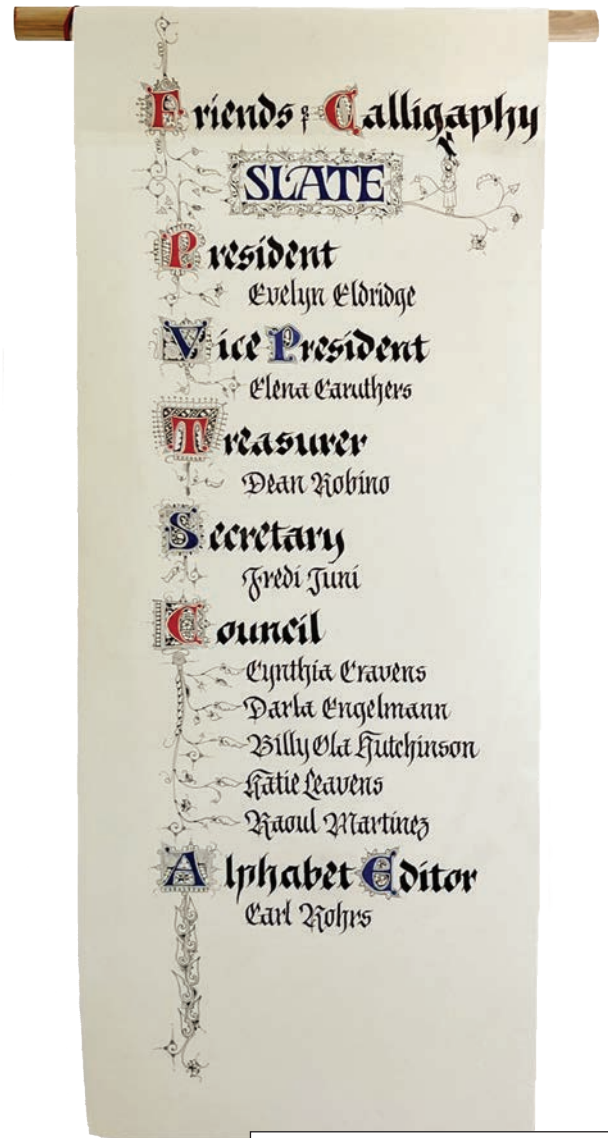 Friends of Calligaphy
r
SLATE
President
Evelyn Eldridge
Vice President
Elena Caruthers
Treasurer
Dean Robino
Secretary
Fredi Juni
Council
Cynthia Cravens
Darla Engelmann
Billy Ola Hutchinson
Katie Leavens
Raoul Martinez
Alphabet Editor
Carl Rohrs